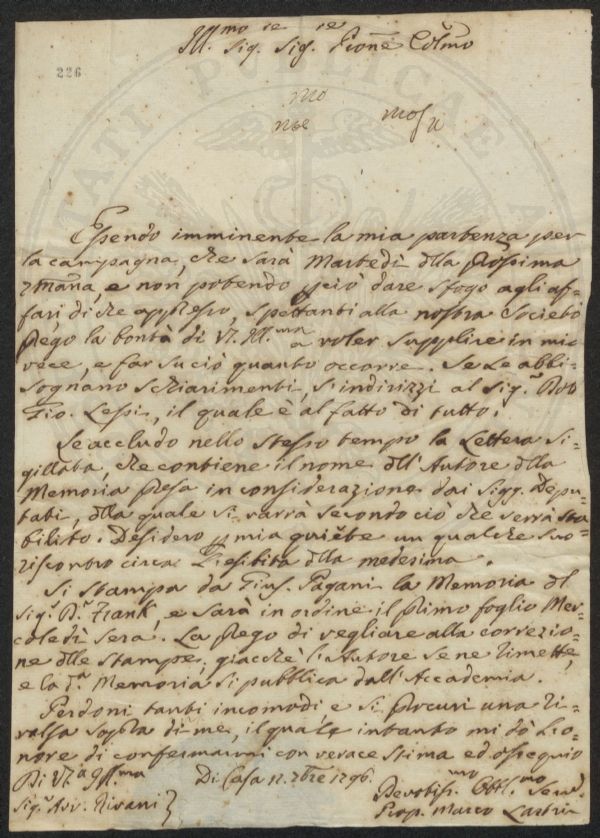 Ill.mo Sig.re Sig.re Pron̄e Col̄mo
226
Essendo imminente la mia partenza per
la campagna, che sarà Martedì dlla prossima
7mana, e non potendo p ciò dare sfogo agli af=
fari di che appresso, spettanti alla nostra Società
Prego la bontà di V. Ill.ma a voler supplire in mia
vece, e far su ciò quanto occorre. Se Le abbi=
sognano schiarimenti, si indirizzi al Sig.r
Gio. Lessi, il quale è al fatto di tutto.
Le accludo nello stesso tempo la Lettera si=
gillata, che contiene il nome dll' Autore dlla
Memoria presa in considerazione dai Sigg. Depu=
tati, dlla quale si varrà secondo ciò che verrà sta=
bilito. Desidero p mia quiete un qualche suo
riscontro circa l'esibita dlla medesima.
Si stampa da Gius. Pagani la Memoria dl
Sig.r D.r Frank, e sarà in ordine il primo foglio Mer=
coledì sera. La prego di vegliare alla correzio=
ne dlle stampe, giacchè l'Autore se ne rimette,
e la d.a Memoria si pubblica dall'Accademia.
Perdoni tanti incomodi e si procuri una ri=
valsa sopra di me, il quale intanto mi dò l'o=
nore di confermarmi con verace stima ed ossequio
Di V.a Ill.ma
Di Casa 7bre 1796.
Devotiss.mo Obbl.mo Serv.
Sig.r Avv. Rivani
Prop. Marco Lastri